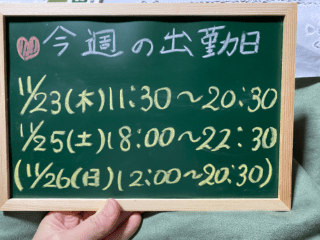 今週の出勤日
11/23(木)11:30～20:30
11/25(土)18:00～22:30
(11/26(日)12:00～20:30)